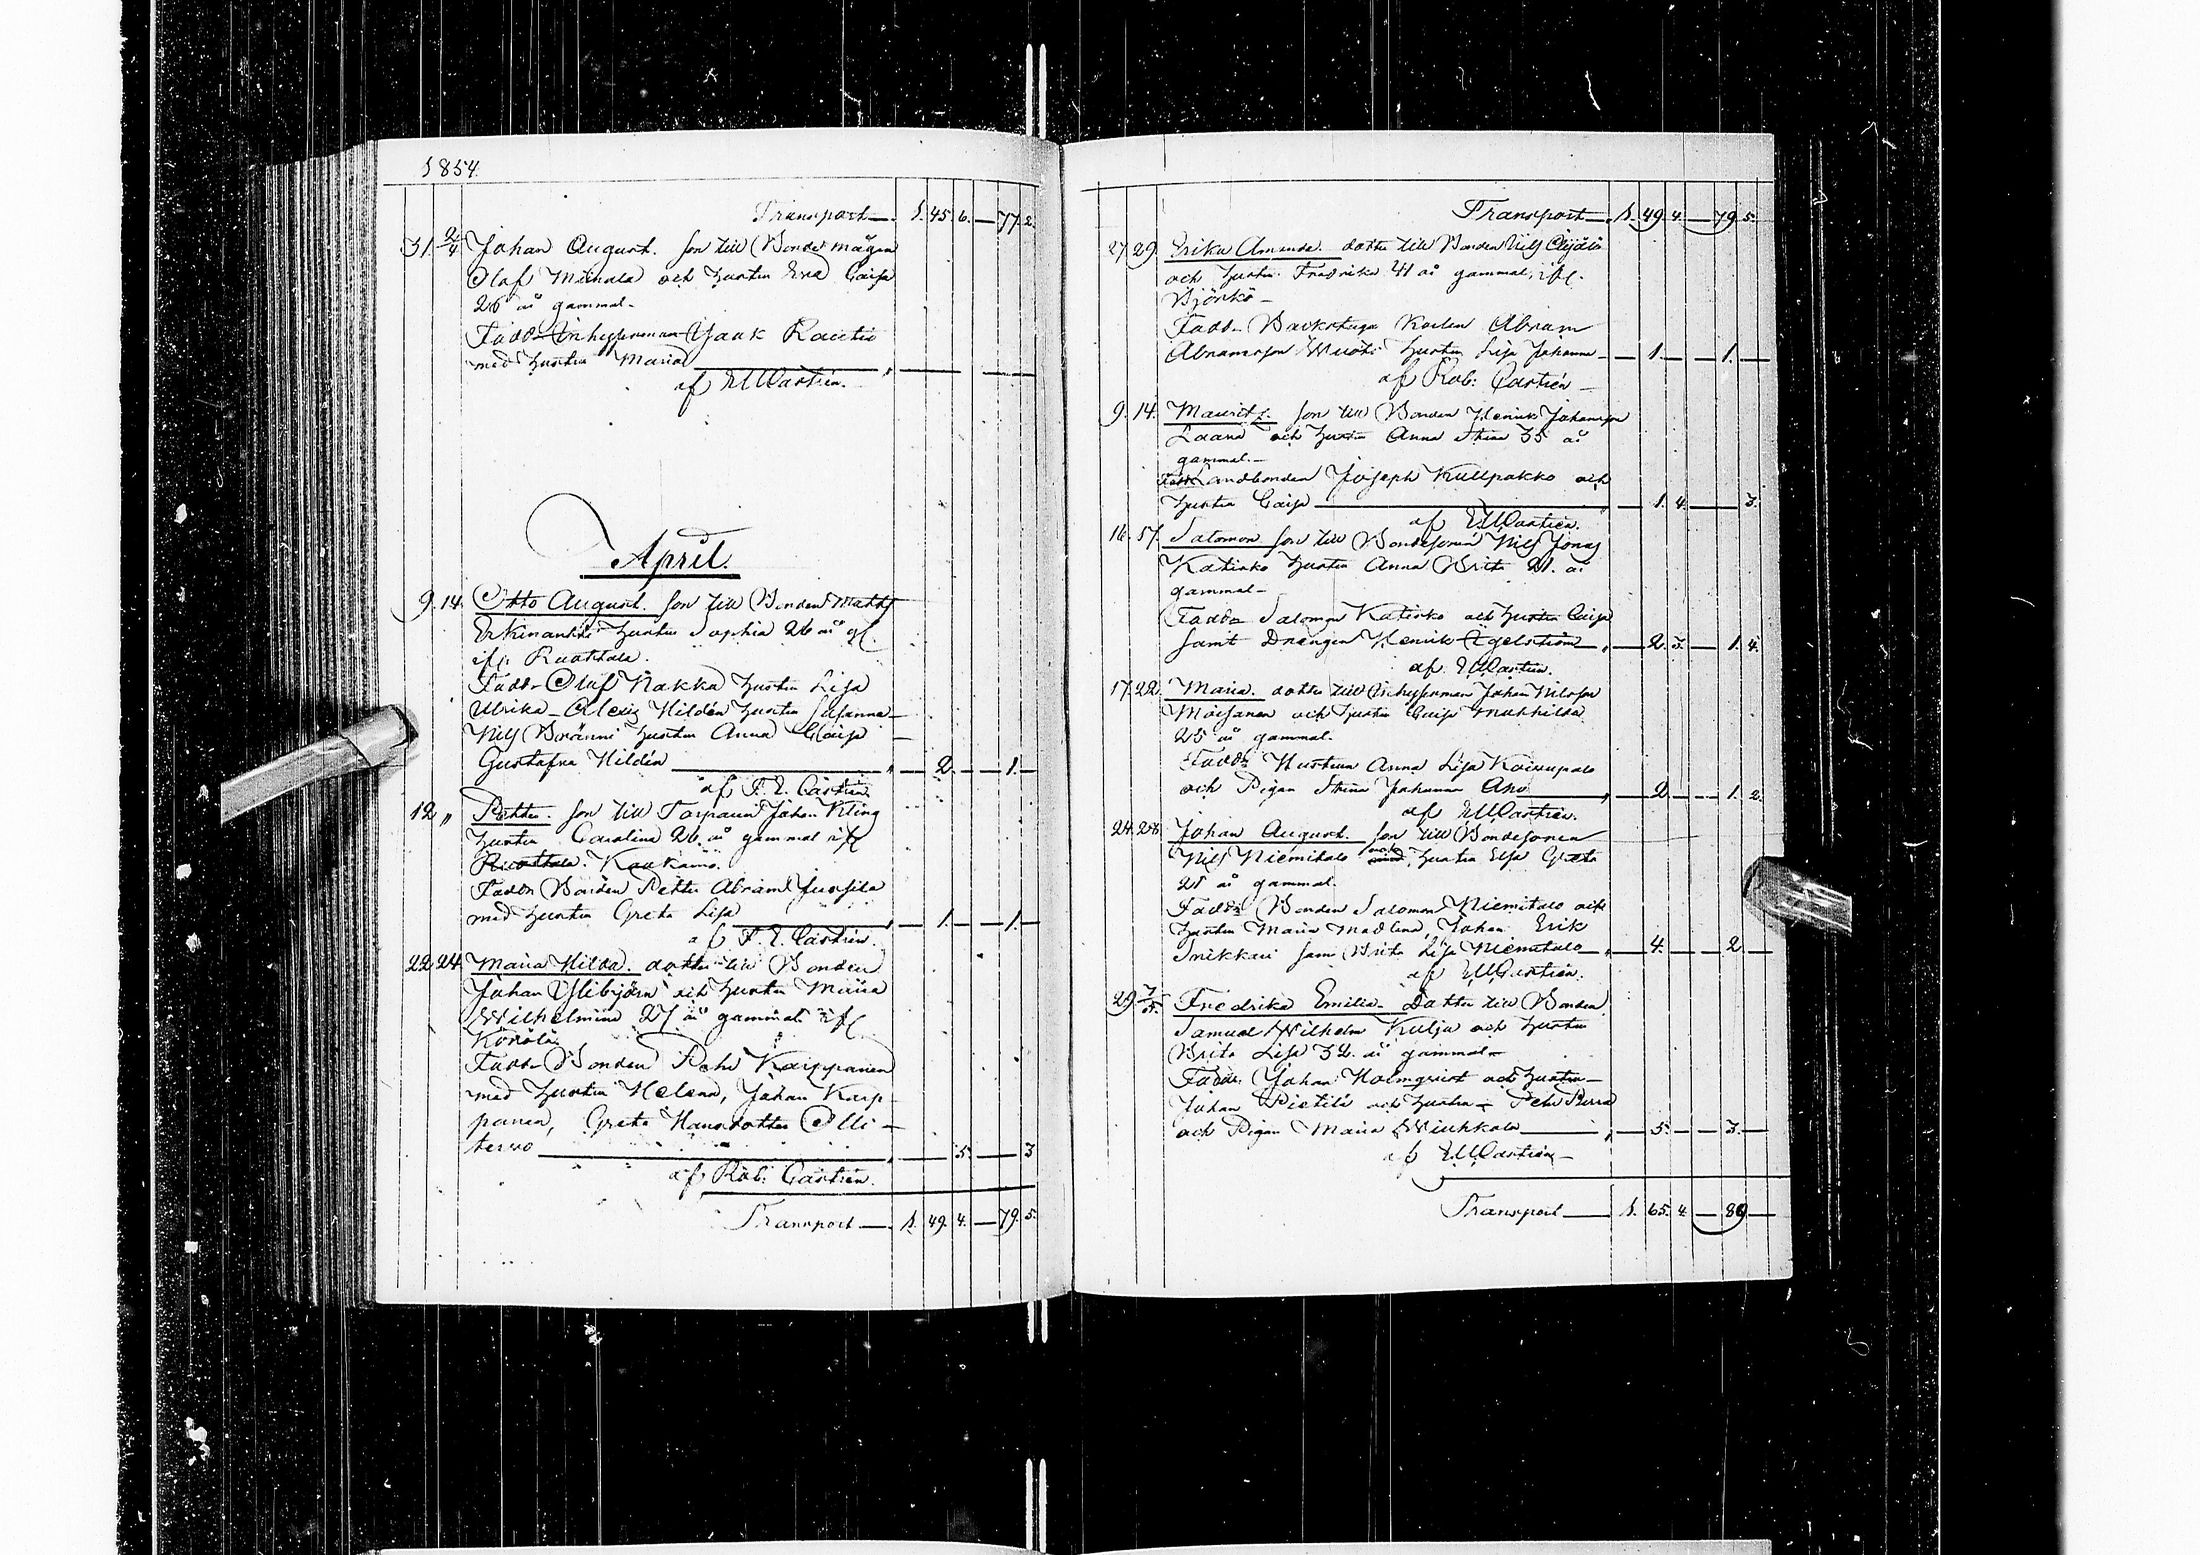 1854.
Transport —. 1. 45. 6. — 77. 2.
31. 2/4 Johan August. son till Bondemågen
Olof och hustru Eva Caisa
26 år gammal.
Fadd. Inhysesman Isaak Rautio
med hustru Maria
af Castrén.
April.
9. 14. Otto August. son till Bonden Matts
Erkinantti hustru Sophia 26 år gl.
ifr. Ruottala.
Fadd. Olof Nakka hustru Lisa
Ulrika – Alexis Hildén hustru Susanna –
Nils Bränni hustru Anna Caisa –
Gustafva Hildén — 2. — 1. —
af F. E. Castrén.
12 „ Petter. son till Torparen Johan Kling
hustru Carolina 26 år gammal ifr
Ruottala. Kaakamo.
Fadd. Bonden Petter Abram Juusila
med hustru Greta Lisa — 1. — 1. —
af F. E. Castrén.
22. 24. Maria Hilda. dotter till Bonden
Johan Ylibjörn och hustru Maria
Wilhelmina 27 år gammal ifr
Könölä.
Fadd. Bonden Pehr Karppanen
med hustru Helena, Johan Karp-
panen, Greta Hansdotter Olli-
tervo — 5. — 3
af Rob: Castrén.
Transport —. 1. 49. 4. — 79. 5.
Transport —. 1. 49. 4. — 79. 5.
27. 29. Erika Amanda. dotter till Bonden Nils
och hustru Fredrika 41 år gammal, ifr.
Björkö –
Fadd. Backstuga Karlen Abram
Abramsson hustru Lisa Johanna — 1. — 1. —
af Rob: Castrén –
9. 14. Mauritz. son till Bonden Henrik Johansson
Laana och hustru Anna Stina 35 år
gammal. –
Fadd. Landbonden Joseph Kullpakko och
hustru Caisa — 1. 4. — 3.
af Castrén.
16. 57. Salomon son till Bondesonen Nils Jonas
Katisko hustru Anna Brita 21. år
gammal –
Fadd. Salomon Katisko och hustru Caisa
samt Drengen Henrik Ögelström — 2. 3. — 1. 4.
af Castrén.
17. 22. Maria. dotter till Inhysesman Johan Nilsson
Moisanen och hustru Caisa Mathilda
25 år gammal.
Fadd. Hustrun Anna Lisa Koivupalo
och Pigan Stina Johanna Aho — 2. — 1. 2.
af Castrén.
24. 28. Johan August. son till Bondesonen
Nils Niemitalo och hustru Elsa Greta
21 år gammal.
Fadd. Bonden Salomon Niemitalo och
hustru Maria Madlena, Johan Erik
Snikkari samt Brita Lisa Niemitalo — 4. — 2. —
af Castrén.
29. 7/5. Fredrika Emilia – Dotter till Bonden
Samuel Wilhelm Kulju och hustru
Brita Lisa 32. år gammal –
Fadd. Johan Holmqvist och hustru –
Johan Pietilä och hustru –
och Pigan Maria — 5. — 3. —
af Castrén –
Transport —. 1. 65. 4. —